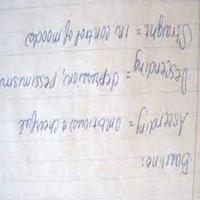 Baseline:
Ascending = ambitious & cheerful
Descending = depression, pessimism
Straight = in control of moods